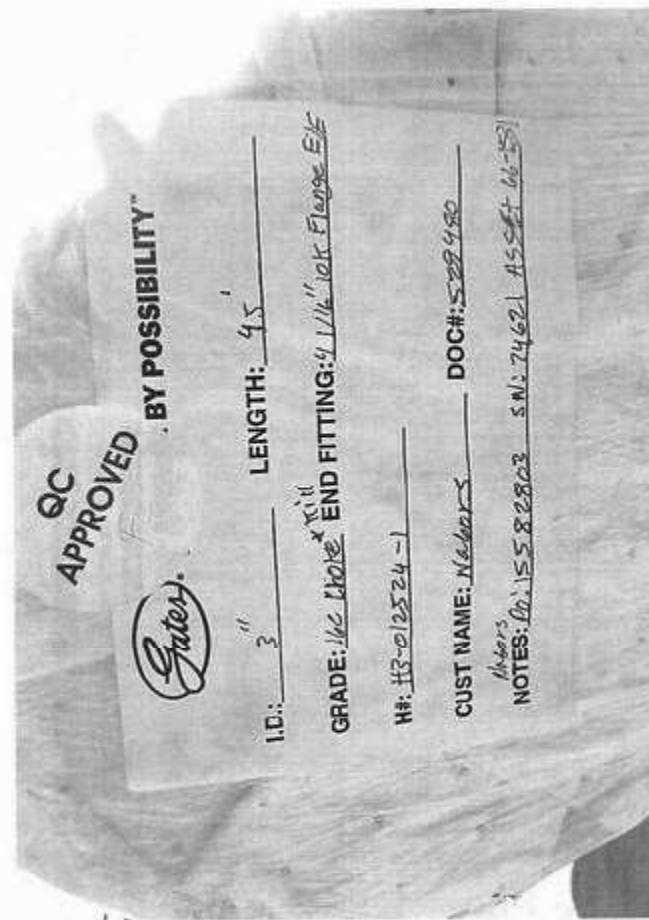 QC
APPROVED
Gates. . BY POSSIBILITY™
I.D.: 3" LENGTH: 45'
GRADE: 16C Choke & Kill END FITTING: 4 1/16" 10K Flange E/E
H#: H3-012524-1
CUST NAME: Nabors DOC#: 529480
Nabors
NOTES: PO: 15582803 SN: 74621 ASSET 66-